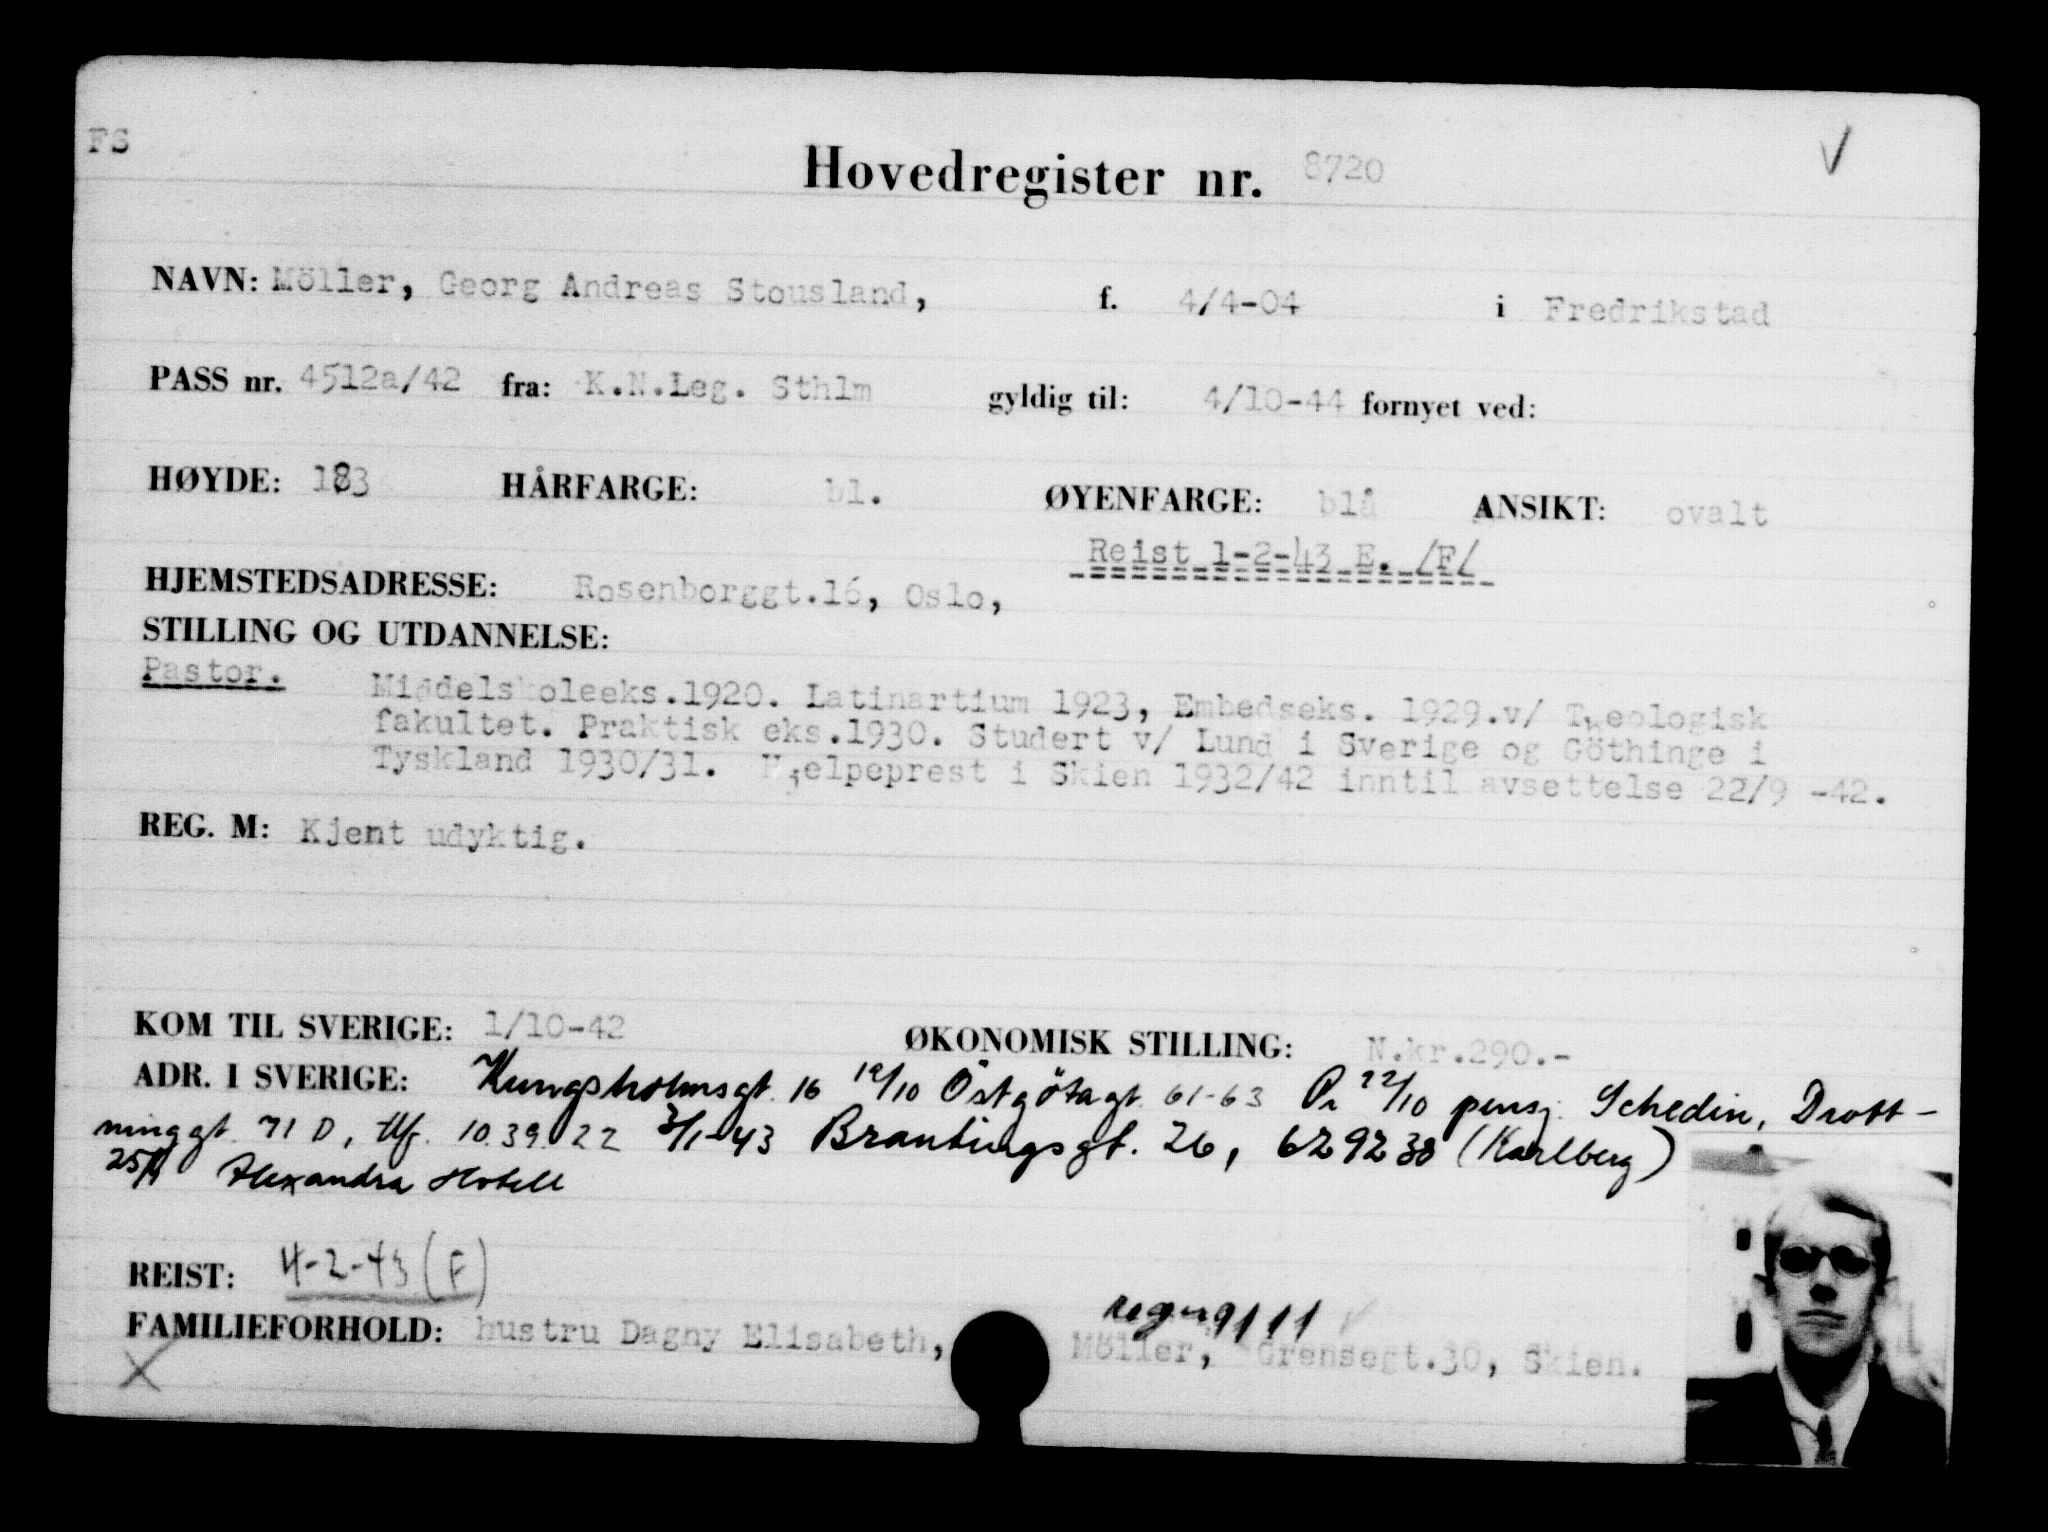 FS
Hovedregister nr. 8720
NAVN: Möller, Georg Andreas Stousland, f. 4/4-04 i Fredrikstad
PASS nr. 4512a/42 fra: K.N.Leg. Sthlm gyldig til: 4/10-44 fornyet ved:
HØYDE: 183 HÅRFARGE: bl. ØYENFARGE: blå ANSIKT: ovalt
Reist 1-2-43 E. /F/
HJEMSTEDSADRESSE: Rosenborggt.16, Oslo,
STILLING OG UTDANNELSE:
Pastor. Middelskoleeks.1920. Latinartium 1923, Embedseks. 1929.v/ Theologisk
fakultet. Praktisk eks.1930. Studert v/ Lund i Sverige og Göthinge i
Tyskland 1930/31. Hjelpeprest i Skien 1932/42 inntil avsettelse 22/9 -42.
REG. M: Kjent udyktig.
KOM TIL SVERIGE: 1/10-42 ØKONOMISK STILLING: N.kr.290.-
ADR. I SVERIGE: Kungsholmsgt. 16 19/10 Östgötagt. 61-63 Pr 22/10 pensj. Schedin, Drott-
ninggt. 71 D, tlf. 10.39.22 3/1-43 Brantingsgt. 26, 629238 (Karlberg)
25/1 Alexandra Hotell
REIST: 4-2-43 (F)
FAMILIEFORHOLD: hustru Dagny Elisabeth, Möller, Grensegt.30, Skien.